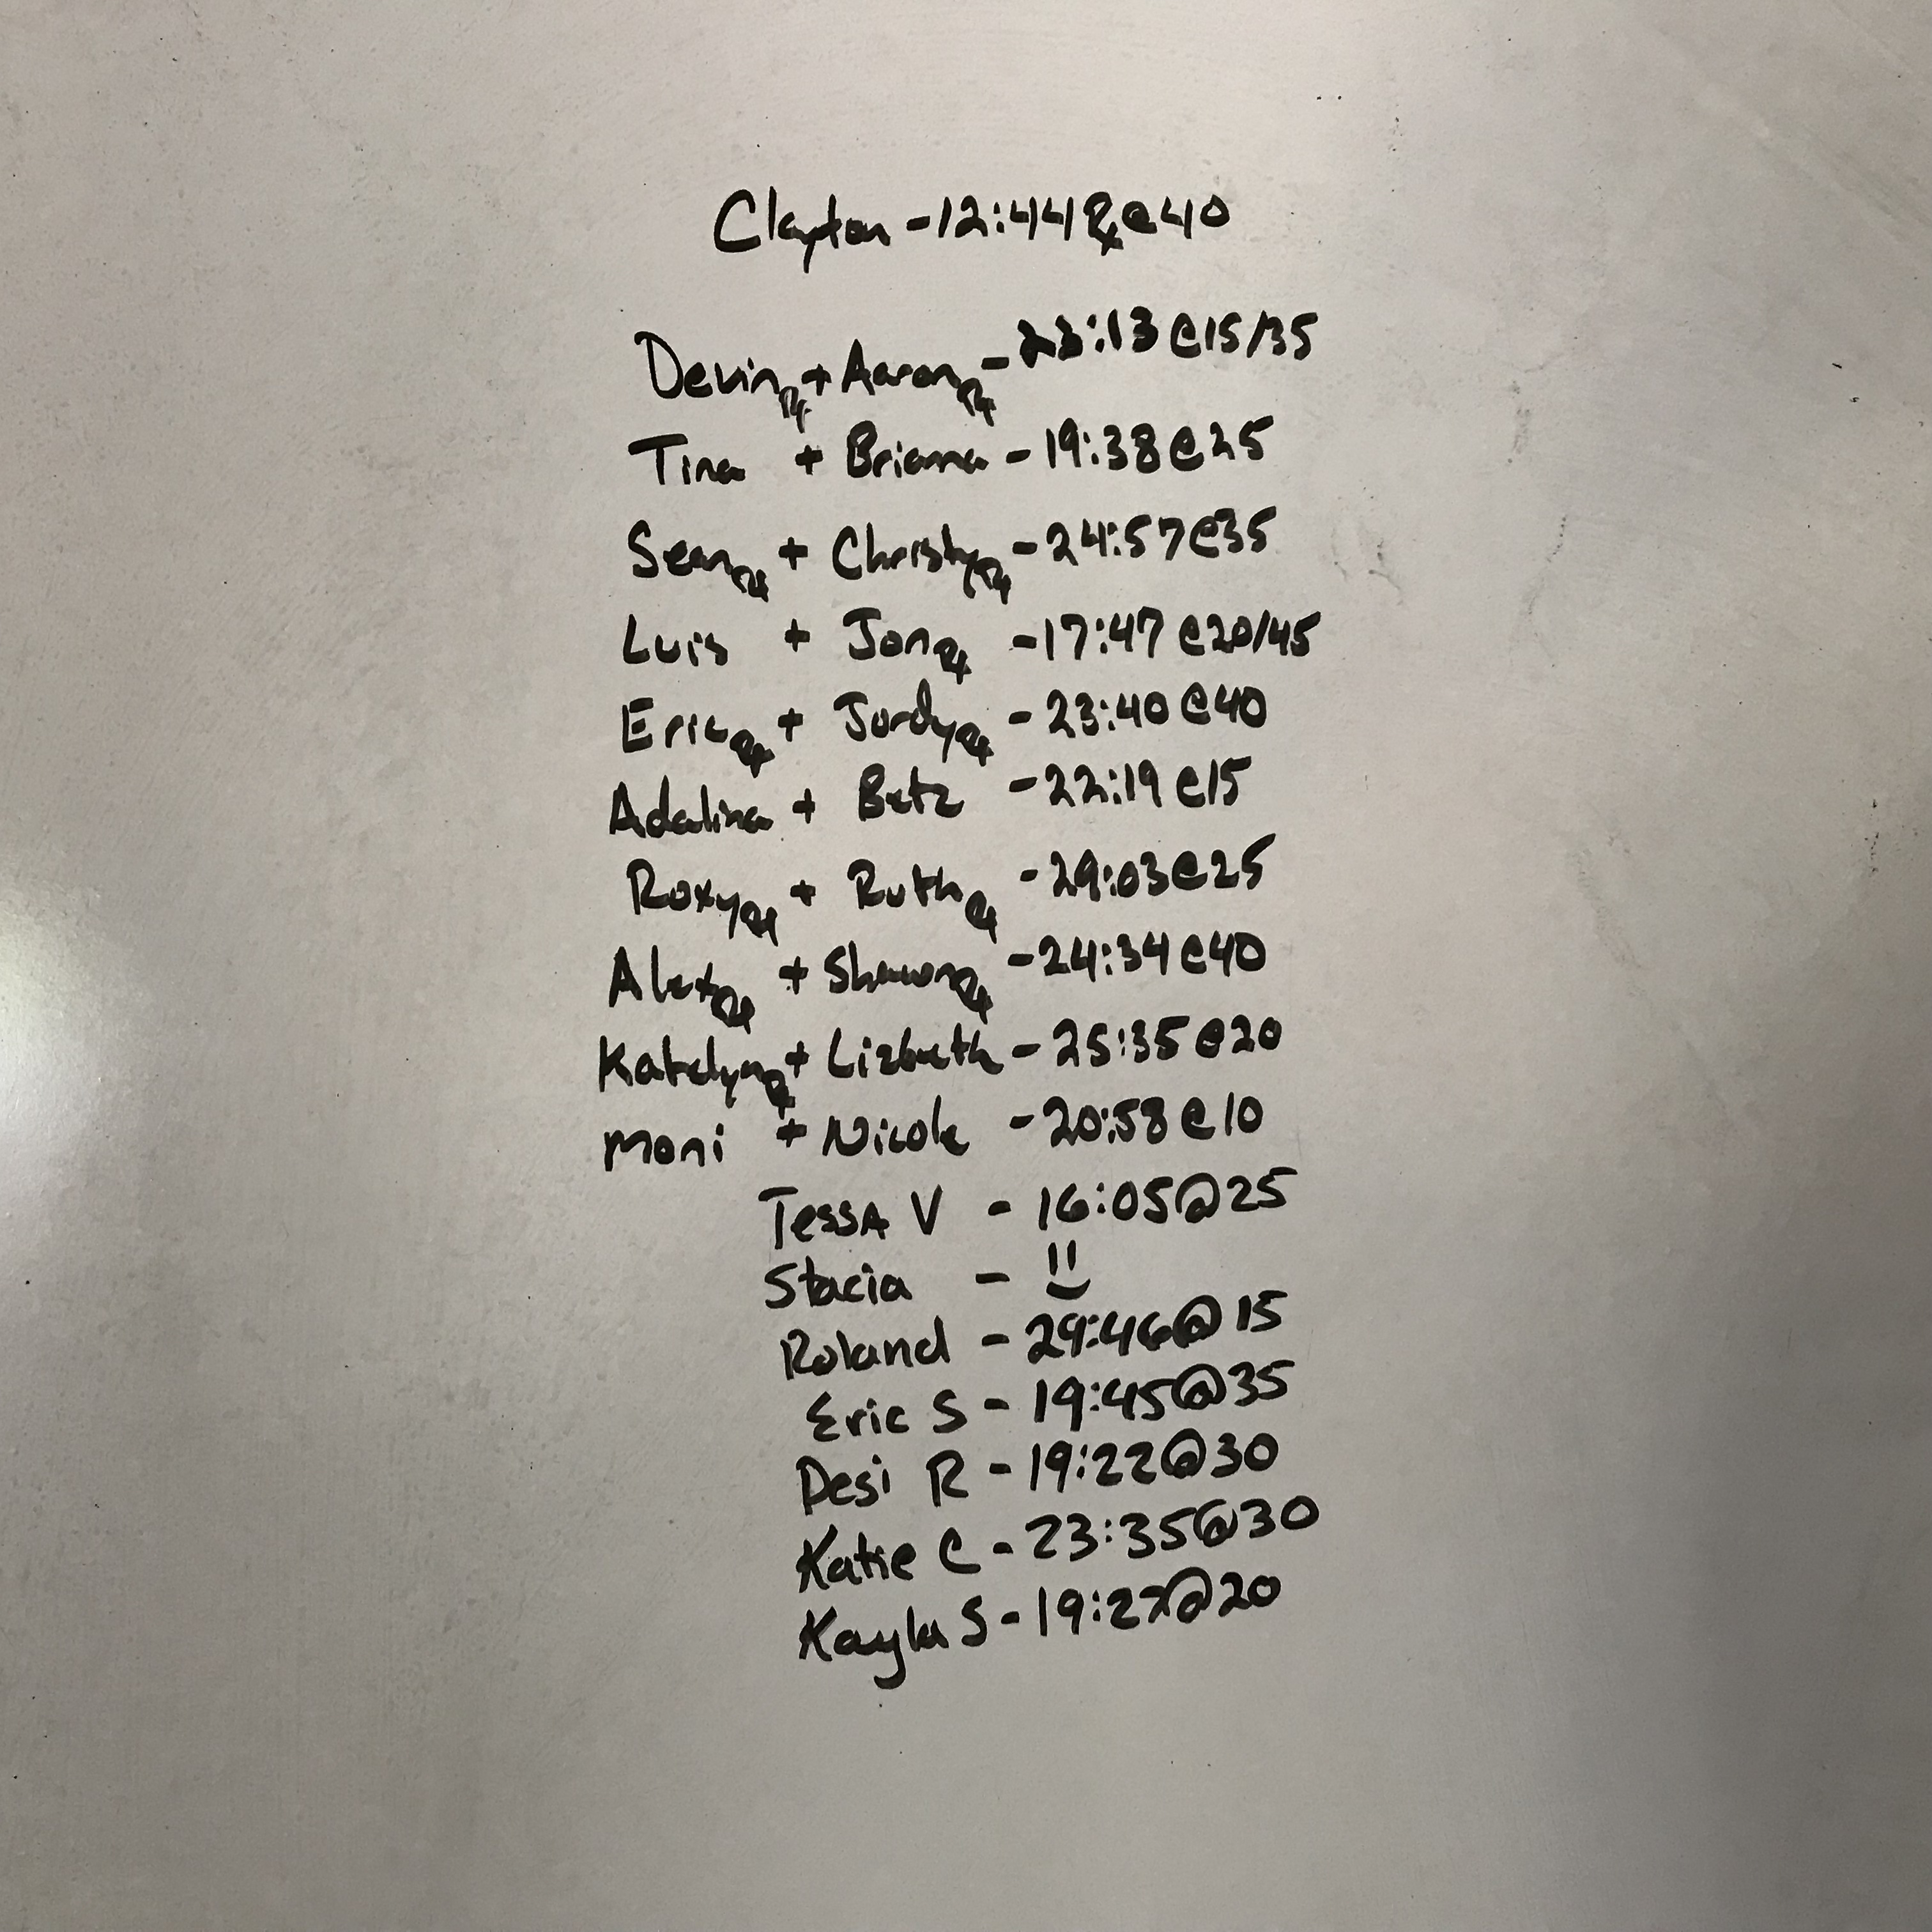 Clayton - 12:44 Rx @ 40
Devin Rx + Aaron Rx - 23:13 @ 15/35
Tina + Brianna - 19:38 @ 25
Sean Rx + Christy Rx - 24:57 @ 35
Luis + Jon Rx - 17:47 @ 20/45
Eric Rx + Jordy Rx - 23:40 @ 40
Adalina + Betz - 22:19 @ 15
Roxy Rx + Ruth Rx - 29:03 @ 25
Alex Rx + Shawn Rx - 24:34 @ 40
Katelyn Rx + Lizbeth - 25:35 @ 20
Moni + Nicole - 20:58 @ 10
Tessa V - 16:05 @ 25
Stacia -
Roland - 29:46 @ 15
Eric S - 19:45 @ 35
Desi R - 19:22 @ 30
Katie C - 23:35 @ 30
Kayla S - 19:27 @ 20